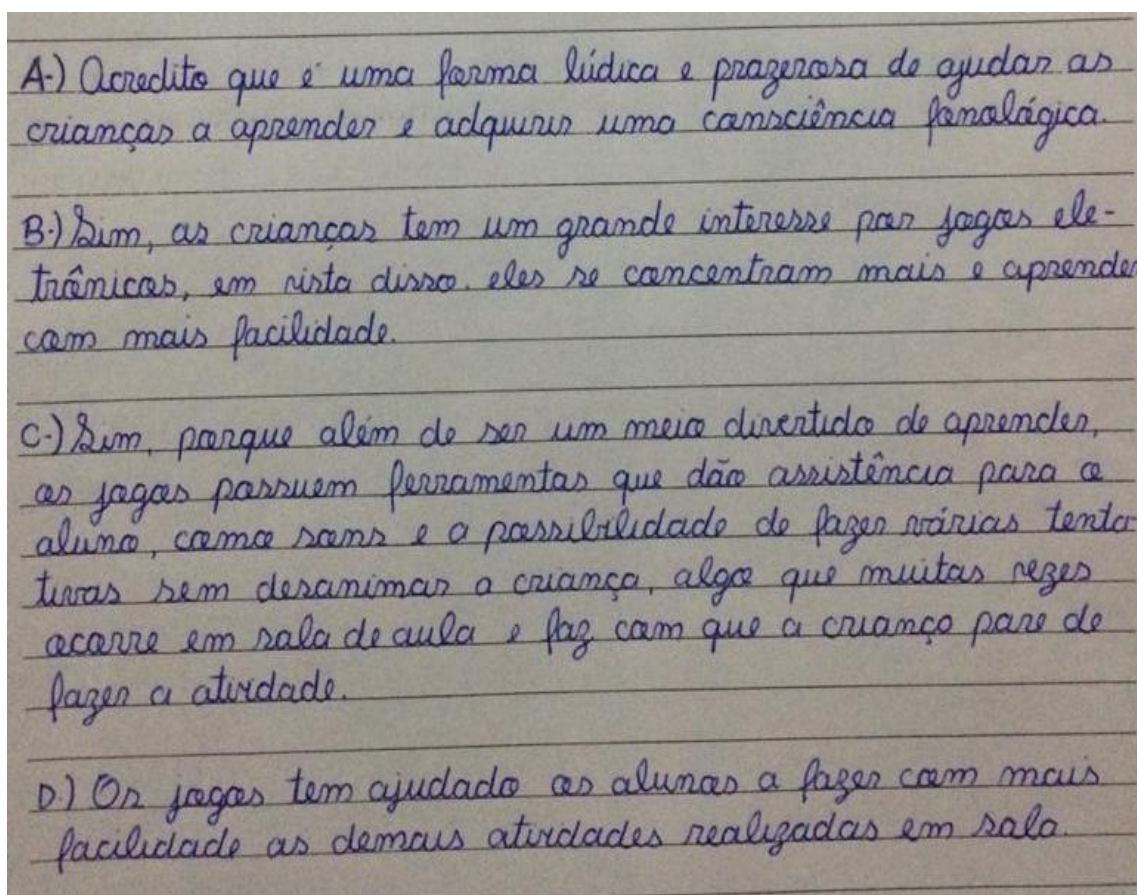 A-) Acredito que é uma forma lúdica e prazerosa de ajudar as
crianças a aprender e adquirir uma consciência fonológica.
B-) Sim, as crianças tem um grande interesse por jogos ele-
trônicos, em vista disso. eles se concentram mais e aprender
com mais facilidade.
C-) Sim, porque além de ser um meio divertido de aprender,
os jogos possuem ferramentas que dão assistência para o
aluno, como sons e a possibilidade de fazer várias tenta-
tivas sem desanimar a criança, algo que muitas vezes
ocorre em sala de aula e faz com que a criança pare de
fazer a atividade.
D.) Os jogos tem ajudado os alunos a fazer com mais
facilidade as demais atividades realizadas em sala.